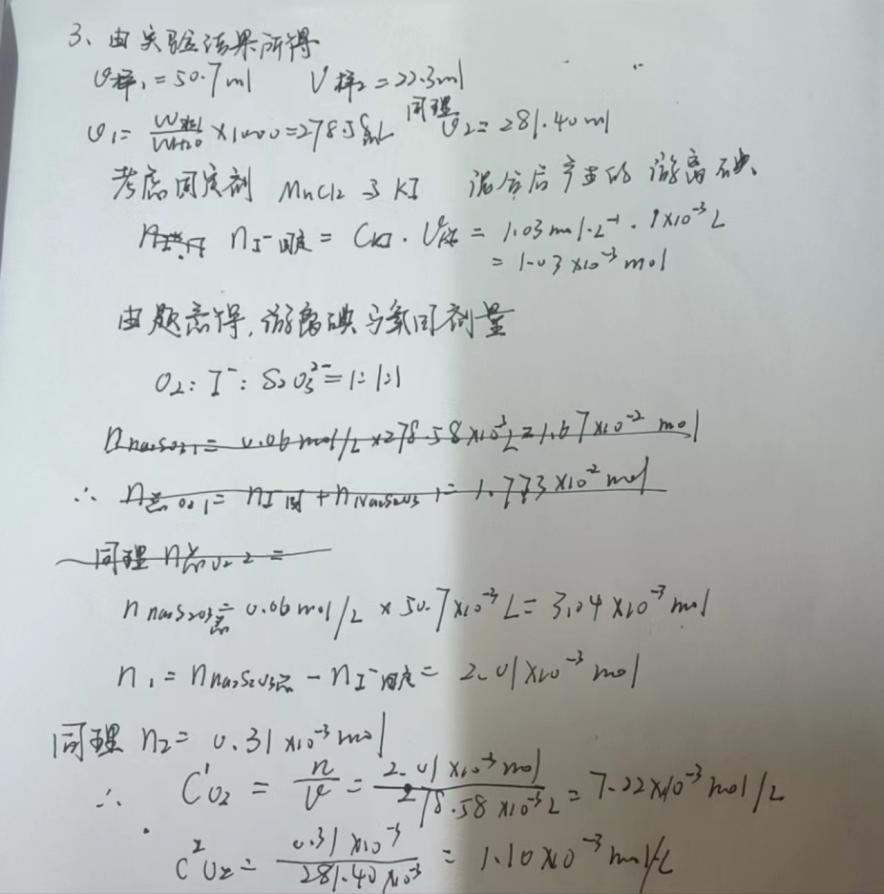 3、由实验结果所得
V样₁=50.7ml V样₂=22.3ml
V₁= W水1/WH₂O ×1000=278.58mL 同理 V₂=281.40ml
考虑固定剂 MnCl₂与KI 混合后产生的游离碘
nI⁻固定 = CKI·V = 1.03mol·L⁻¹·1×10⁻³L
=1.03×10⁻³mol
由题意得,游离碘与氧同剂量
O₂:I⁻:S₂O₃²⁻=1:1:1
nNa₂S₂O₃1=0.06mol/L×278.58×10⁻³L=1.67×10⁻²mol
∴ n总O₂1=nI⁻固+nNa₂S₂O₃1=1.773×10⁻²mol
同理n总O₂2=
nNa₂S₂O₃总=0.06mol/L×50.7×10⁻³L=3.04×10⁻³mol
n₁=nNa₂S₂O₃总-nI⁻固定=2.01×10⁻³mol
同理n₂=0.31×10⁻³mol
∴ C¹O₂=n/V=2.01×10⁻³mol/278.58×10⁻³L=7.22×10⁻³mol/L
C²O₂=0.31×10⁻³/281.40×10⁻³=1.10×10⁻³mol/L